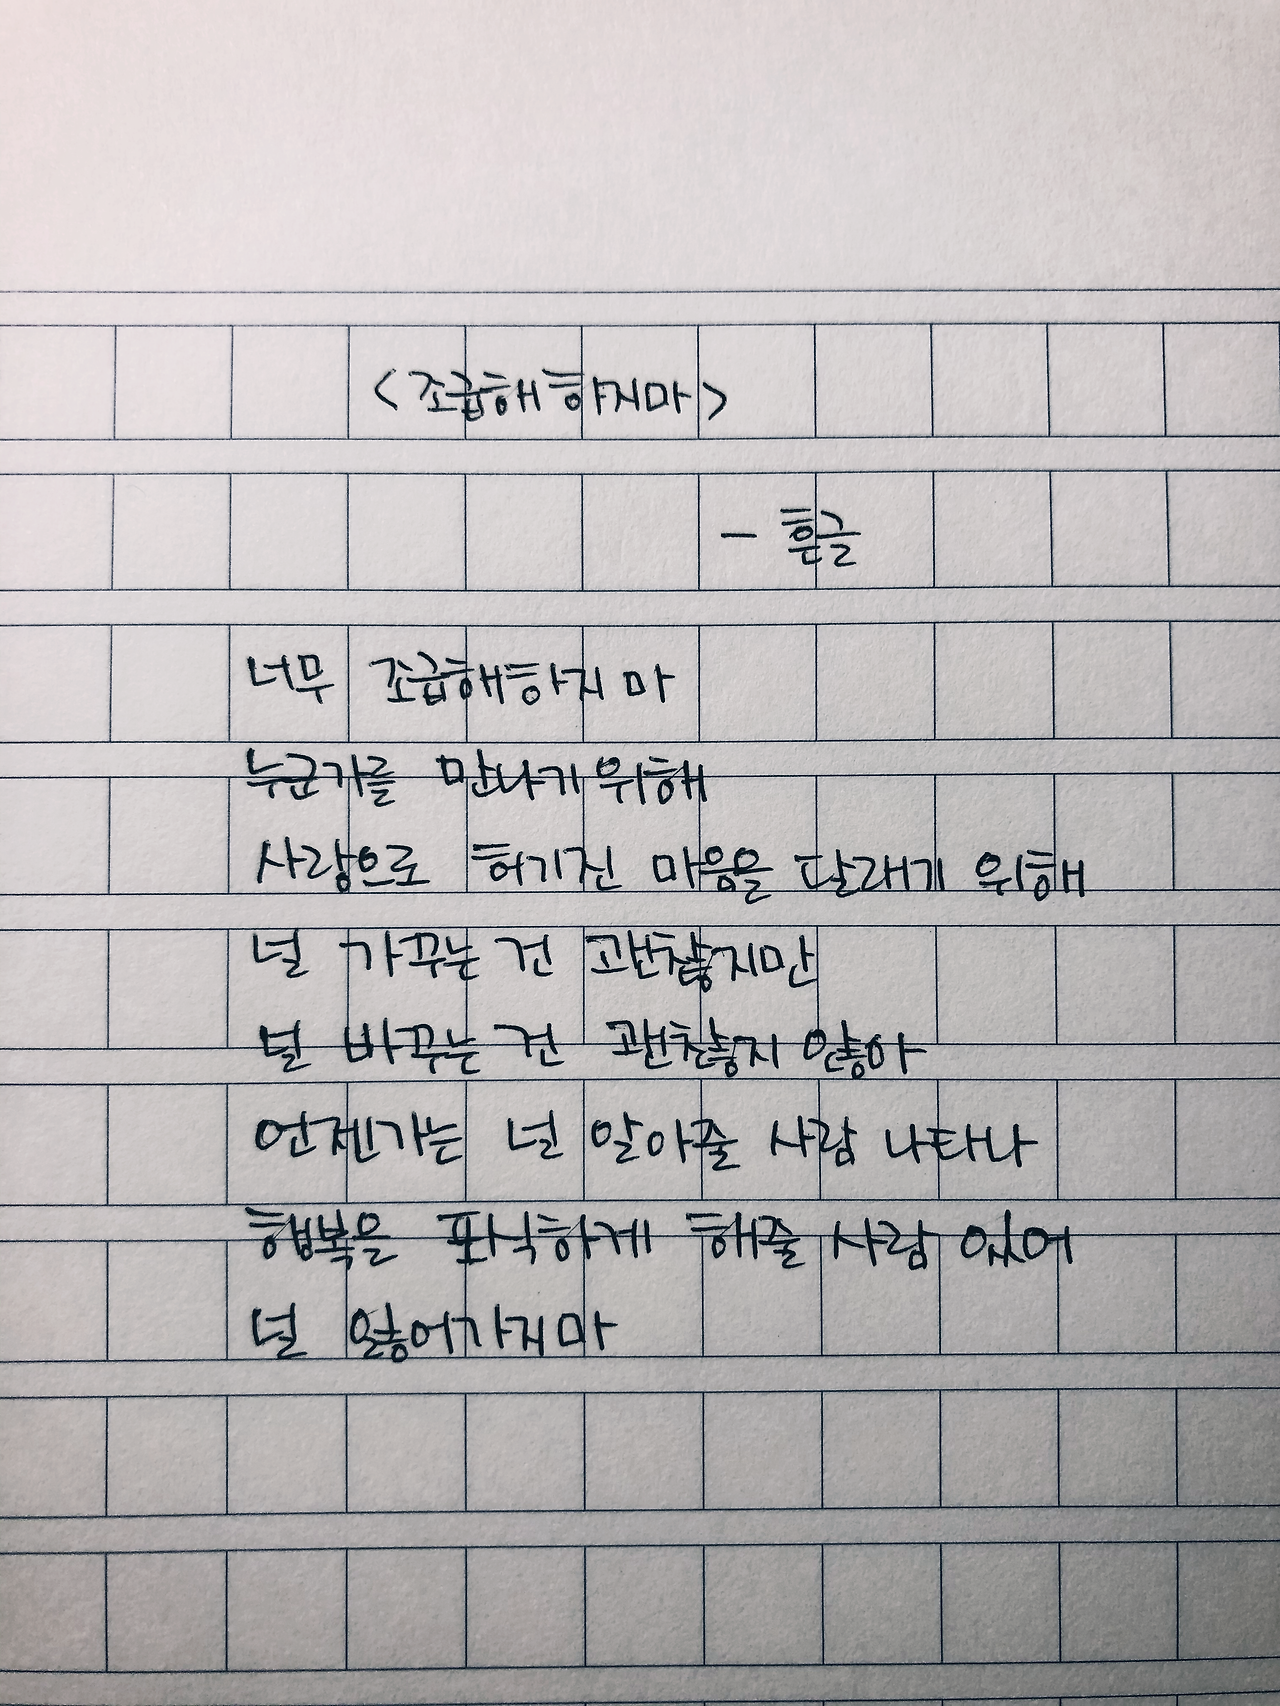 <조급해 하지마>
- 흔글
너무 조급해하지 마
누군가를 만나기 위해
사랑으로 허기진 마음을 달래기 위해
널 가꾸는 건 괜찮지만
널 바꾸는 건 괜찮지 않아
언젠가는 널 알아줄 사람 나타나
행복을 포식하게 해줄 사람 있어
널 잃어가지마